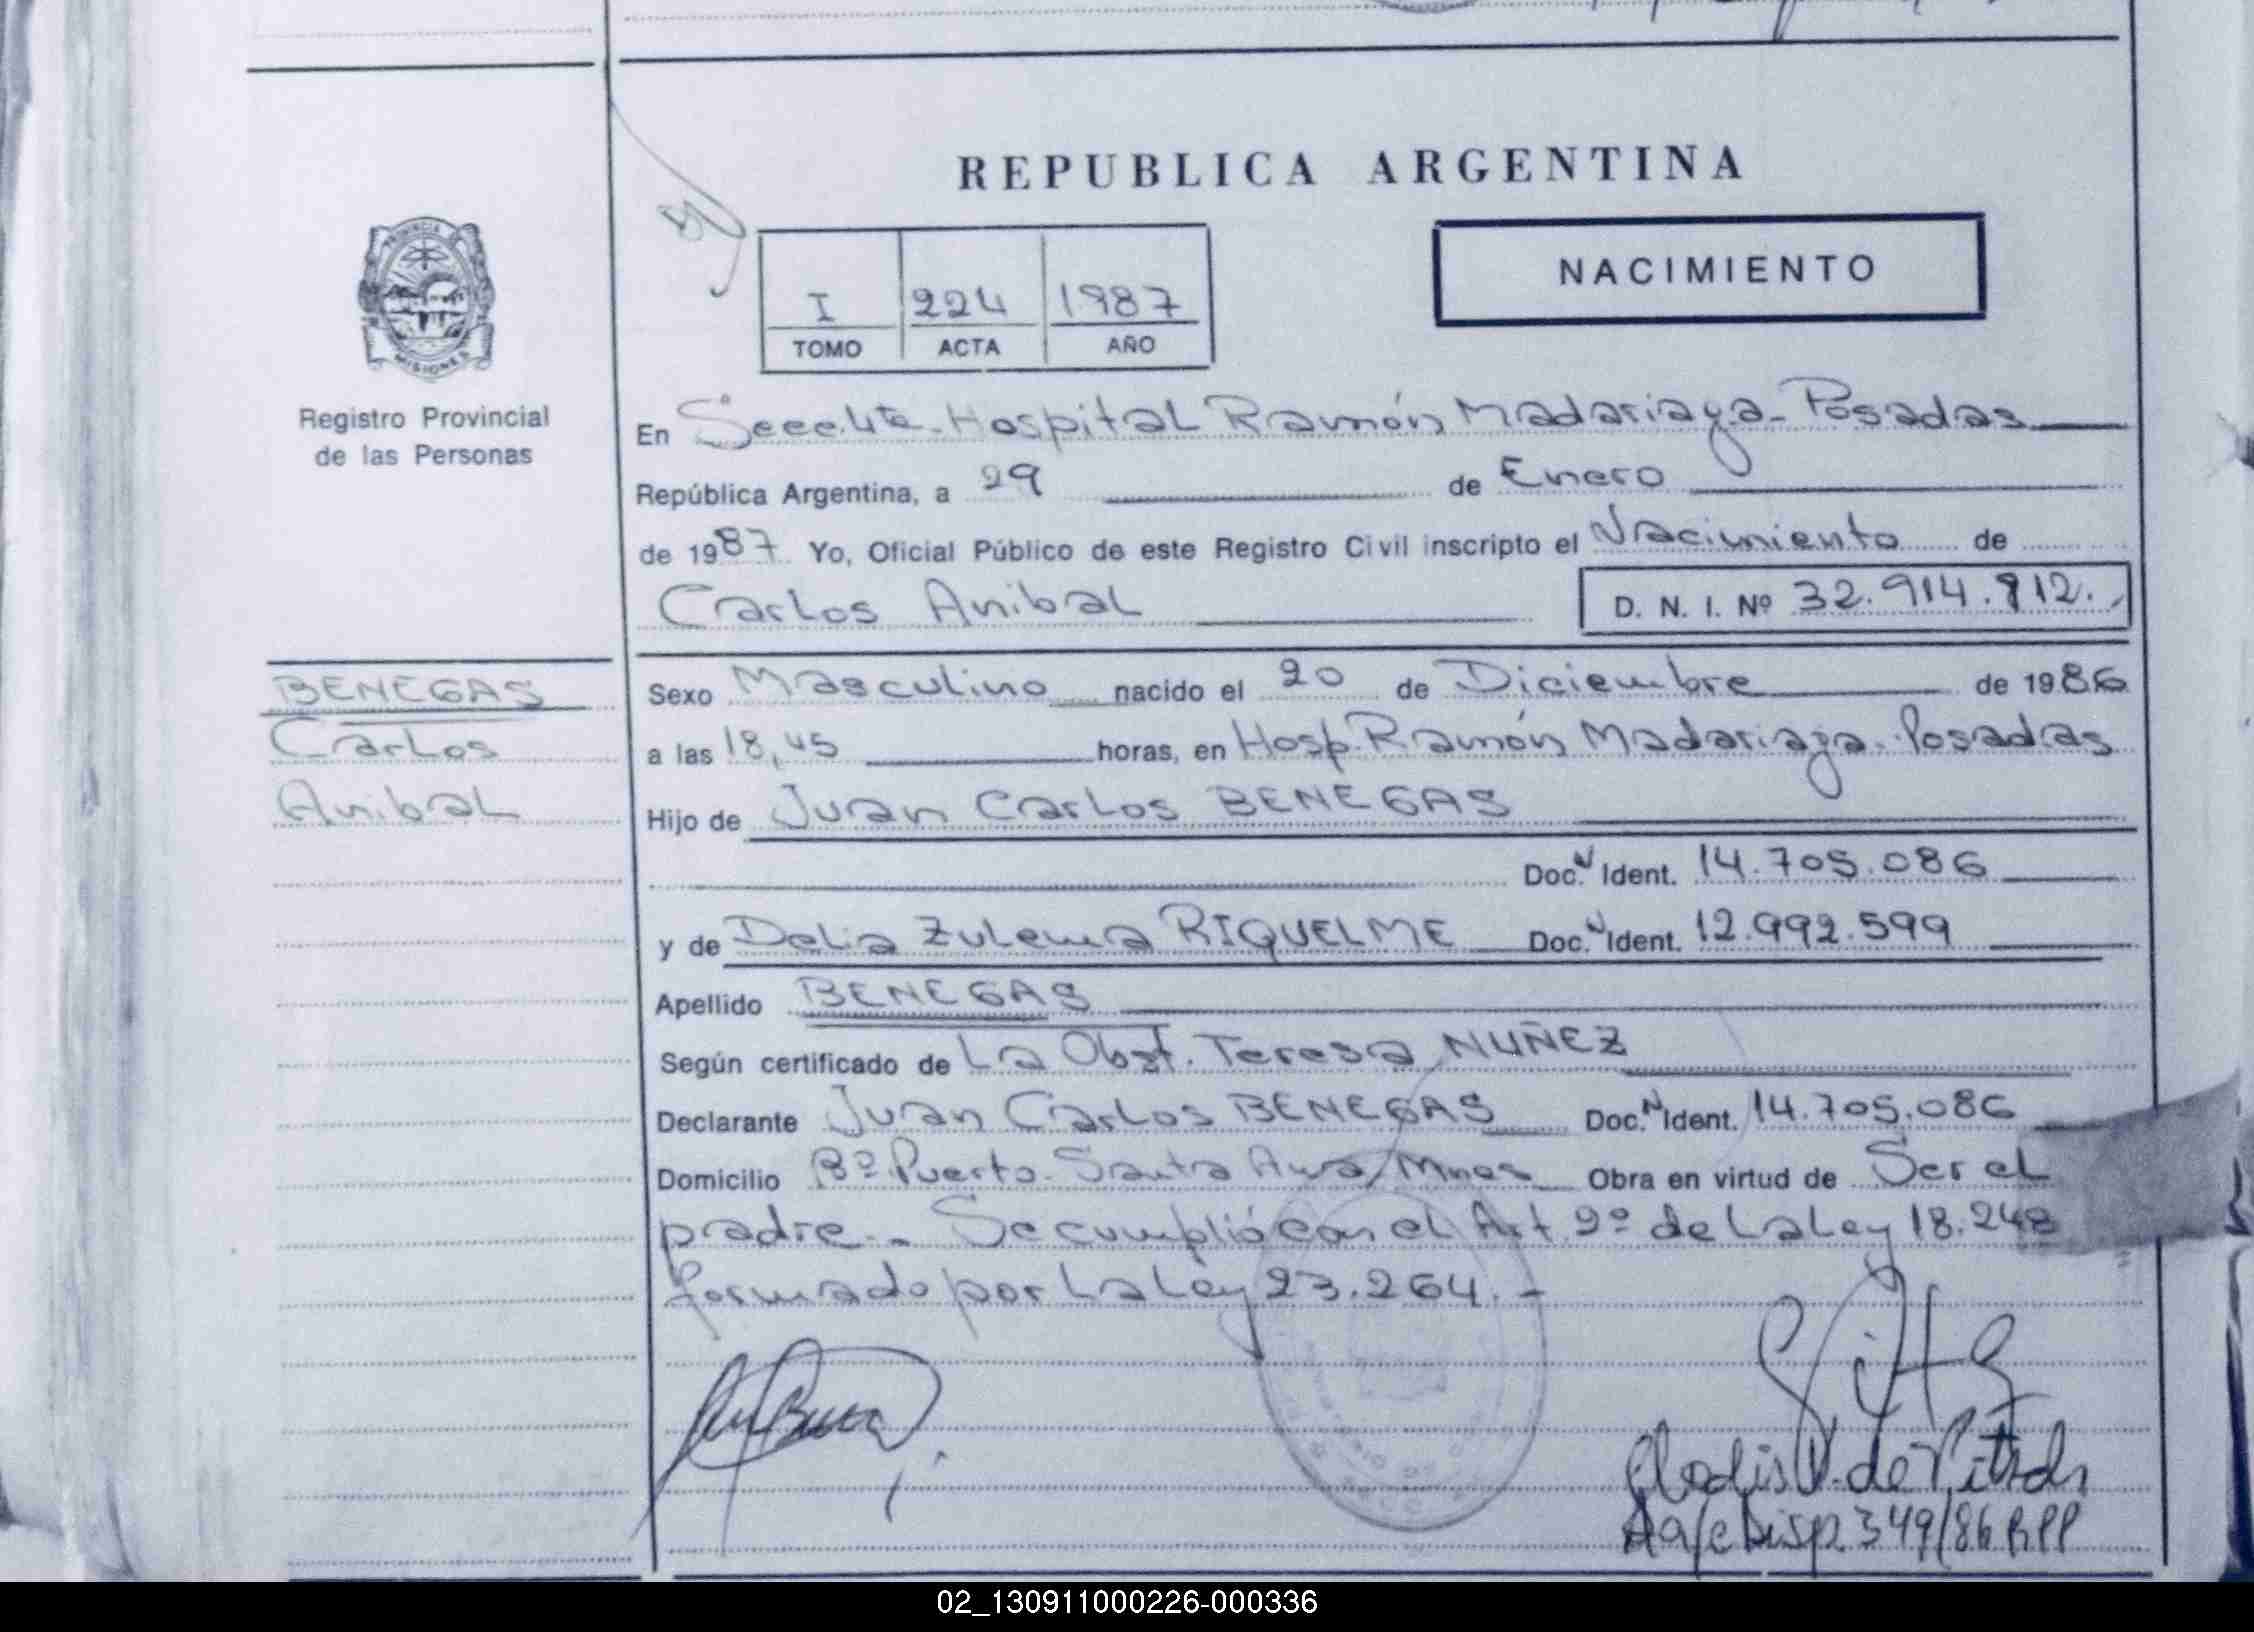 REPUBLICA ARGENTINA
NACIMIENTO
PROVINCIA
MISIONES
Registro Provincial
de las Personas
I 224 1987
TOMO ACTA AÑO
En Hospital Ramón Madariaga - Posadas
República Argentina, a 29 de Enero
de 1987 Yo, Oficial Público de este Registro Civil inscripto el Nacimiento de
Carlos Anibal D. N. I. Nº 32.914.812.
BENEGAS
Carlos
Anibal
Sexo Masculino nacido el 20 de Diciembre de 1986
a las 18,45 horas, en Hosp. Ramón Madariaga - Posadas
Hijo de Juan Carlos BENEGAS
Doc. N Ident. 14.705.086
y de Delia Zulema RIQUELME Doc. N Ident. 12.992.599
Apellido BENEGAS
Según certificado de La Obst. Teresa NUÑEZ
Declarante Juan Carlos BENEGAS Doc. N Ident. 14.705.086
Domicilio Bº Puerto - Santa Ana, Mnes Obra en virtud de Ser el
padre. - Se cumplió con el Art 2º de La Ley 18.248
formado por La Ley 23.264. -
Disp. 349/86 RPP
02_130911000226-000336